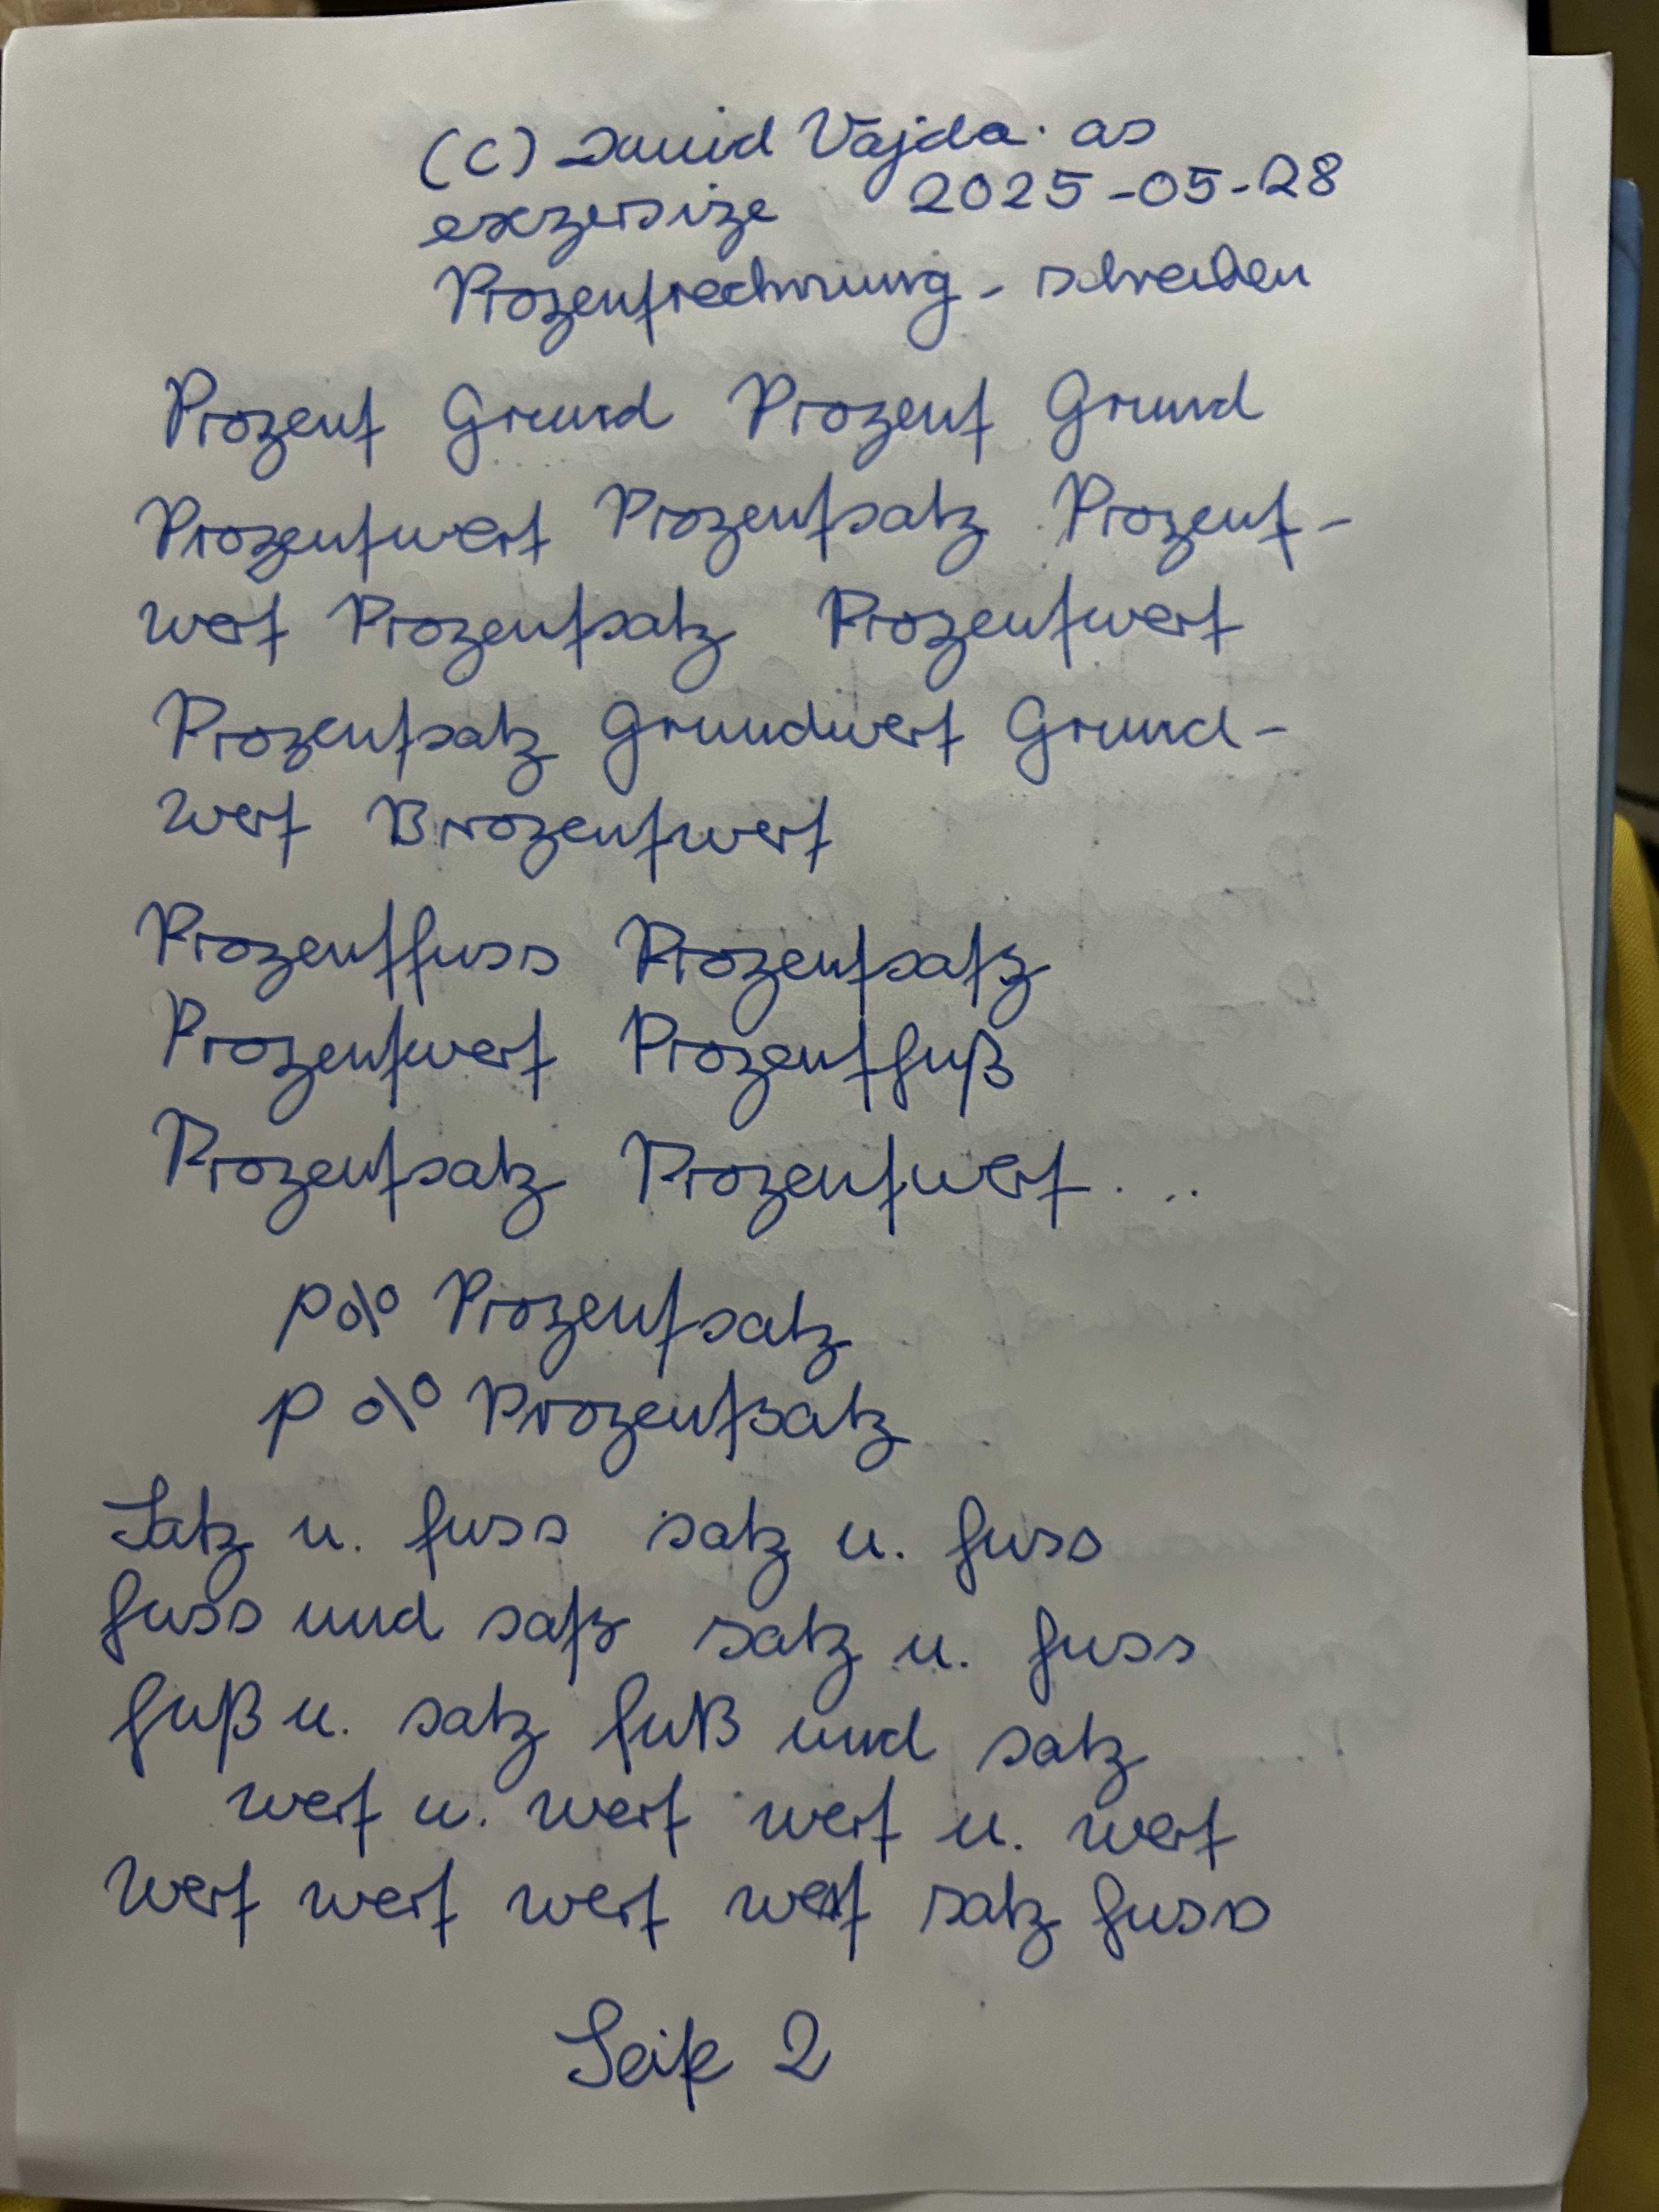 (C) David Vajda. as
exzersize 2025-05-28
Prozentrechnung - schreiben
Prozent Grund Prozent Grund
Prozentwert Prozentsatz Prozent-
wert Prozentsatz Prozentwert
Prozentsatz Grundwert Grund-
wert Brozentwert
Prozentfuss Prozentsatz
Prozentwert Prozentfuß
Prozentsatz Prozentwert...
p% Prozentsatz
p % Prozentsatz
Satz u. fuss satz u. fuss
fuss und satz satz u. fuss
fuß u. satz fuß und satz
wert u. wert wert u. wert
Wert wert wert wert satz fuss
Seite 2